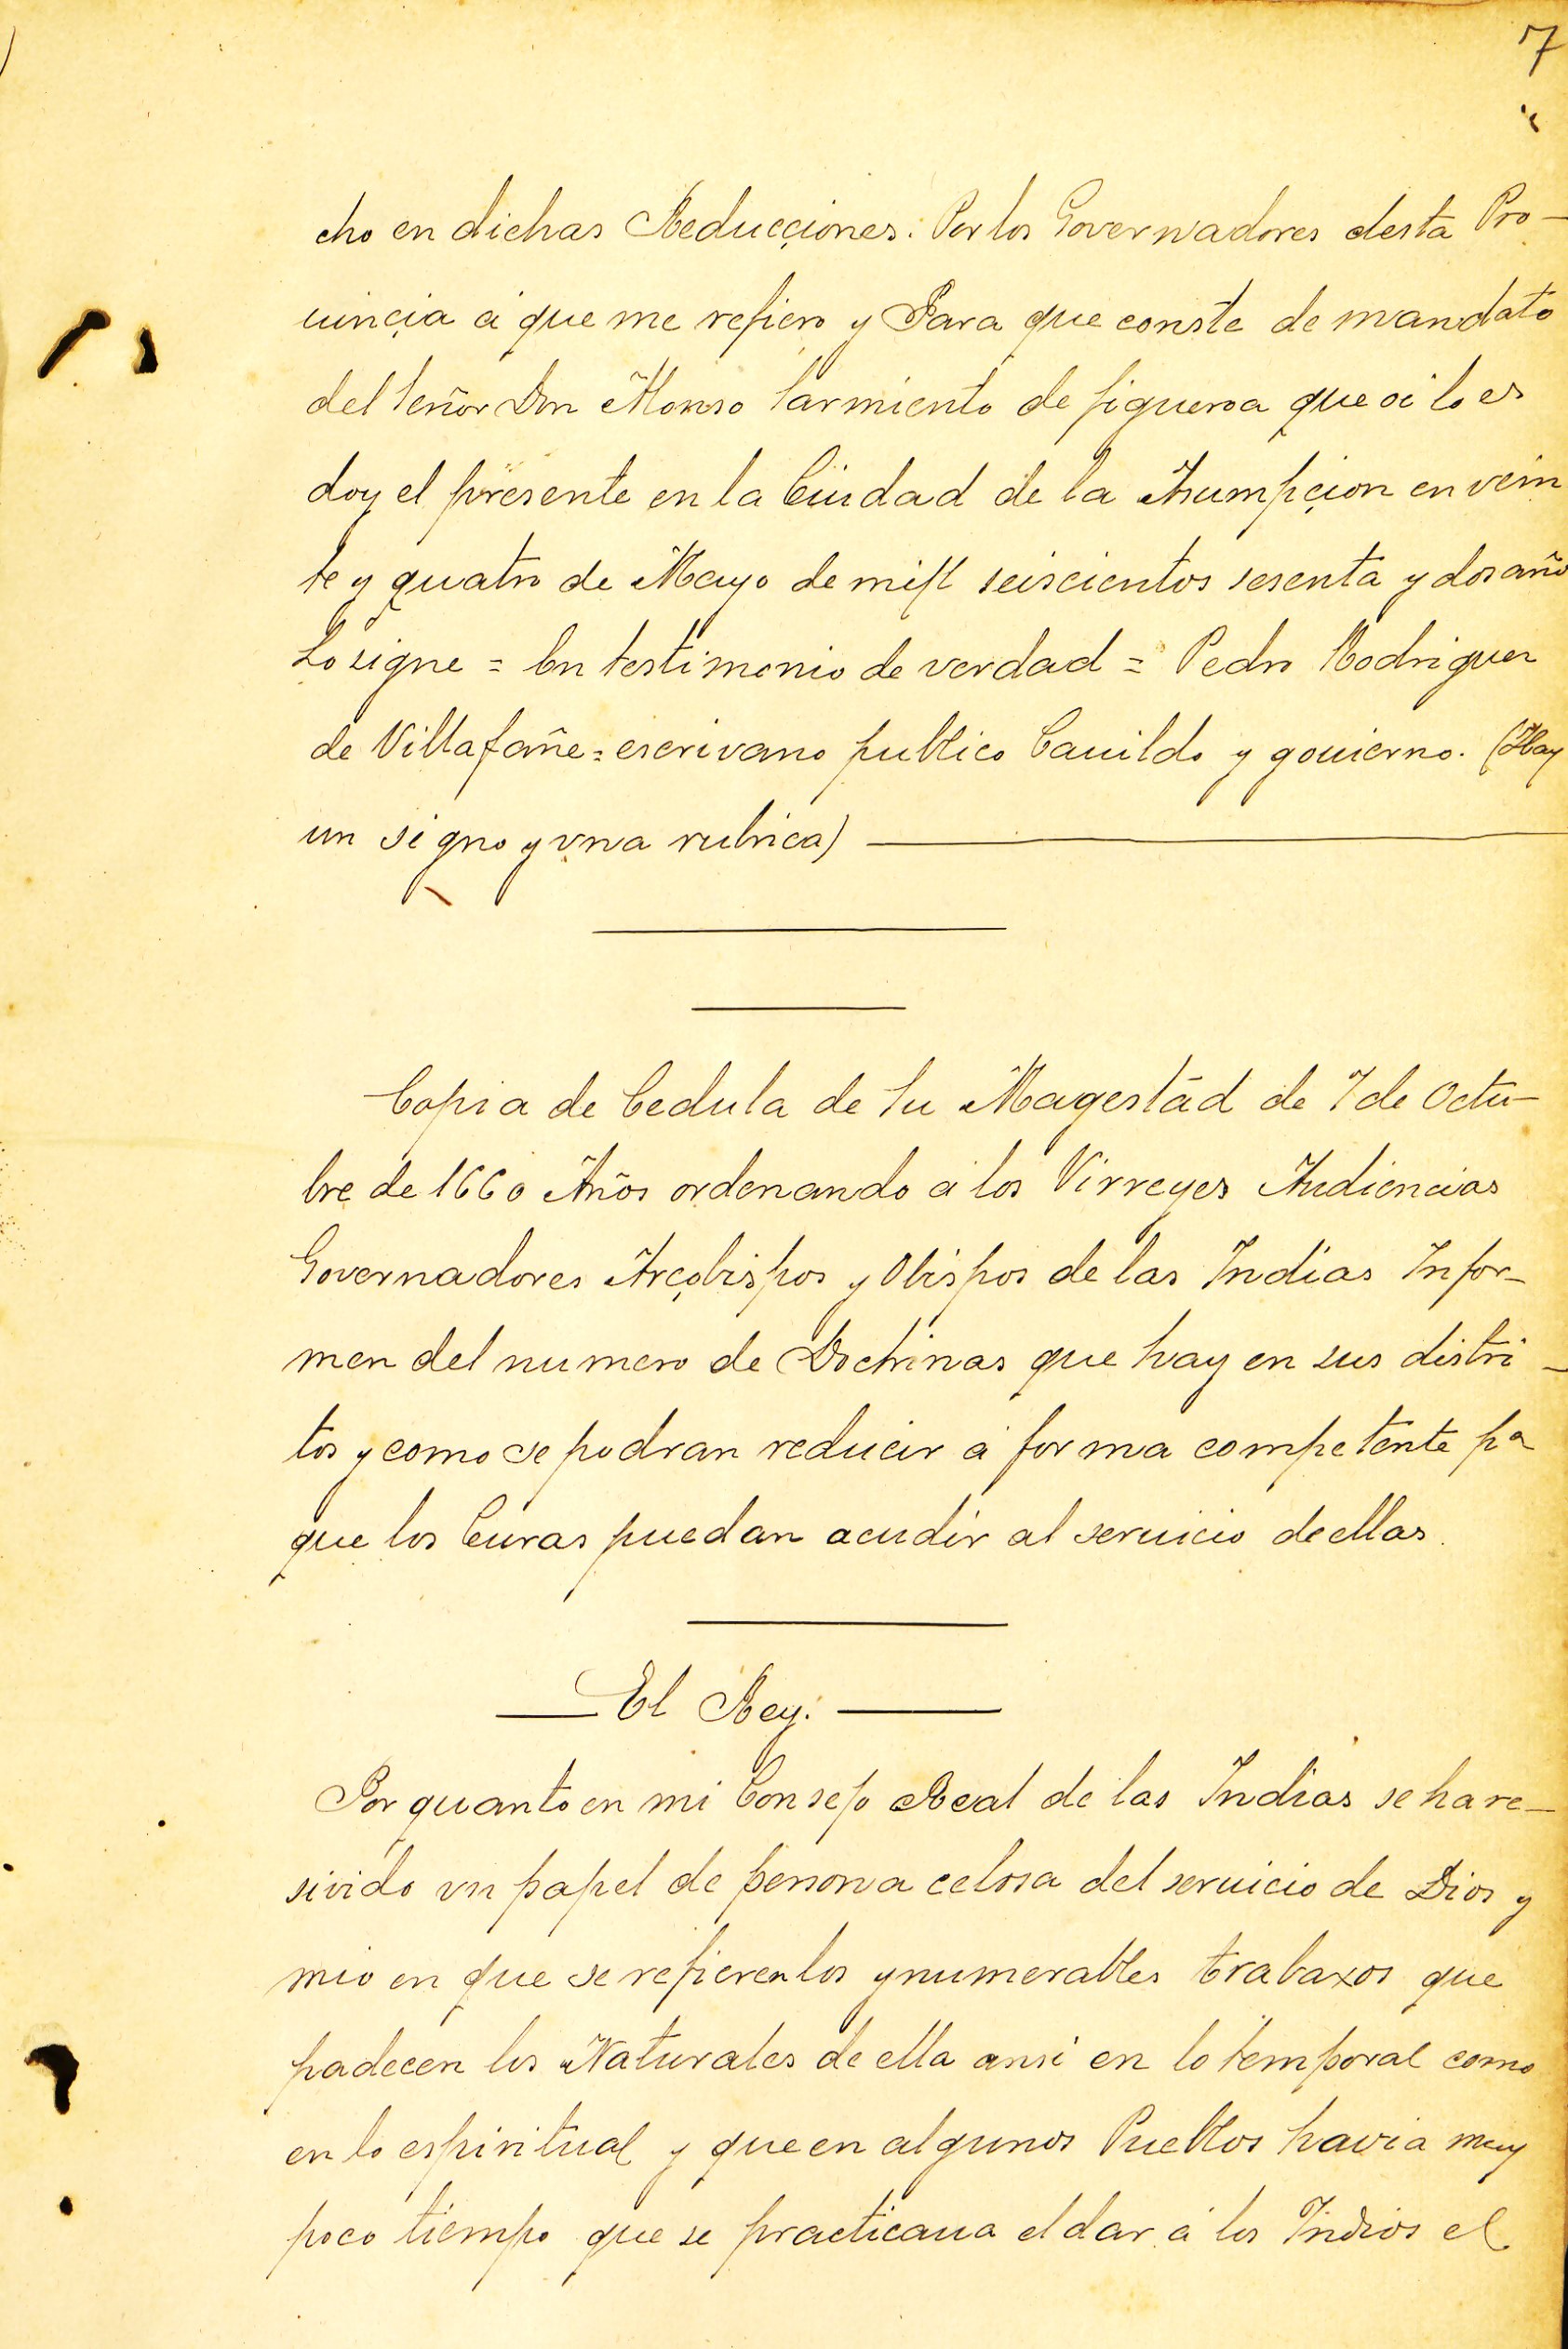 7
cho en dichas Reducçiones. Por los Governadores desta Pro-
uinçia á que me refiero y Para que conste de mandato
del Señor Don Alonso Sarmiento de figueroa que oi lo es
doy el presente en la Ciudad de la Asumpçion en vein
te y quatro de Mayo de mill seiscientos sesenta y dos año
Lo signe = En testimonio de verdad = Pedro Rodriguez
de Villafañe = escrivano publico Cauildo y gouierno. (Hay
un signo y vna rubrica)
Copia de Cedula de Su Magestad de 7 de Octu-
bre de 1660 Años ordenando á los Virreyes Audiencias
Governadores Arçobispos y Obispos de las Indias Infor-
men del numero de Doctrinas que hay en sus distri-
tos y como se podran reducir á forma competente pa
que los Curas puedan acudir al seruicio de ellas.
El Rey.
Por quanto en mi Consejo Real de las Indias se ha re-
sivido vn papel de persona celosa del seruicio de Dios y
mio en que se refieren los ynumerables trabaxos que
padecen los Naturales de ella ansi en lo temporal como
en lo espiritual y que en algunos Pueblos havia muy
poco tiempo que se practicaua el dar á los Indios el